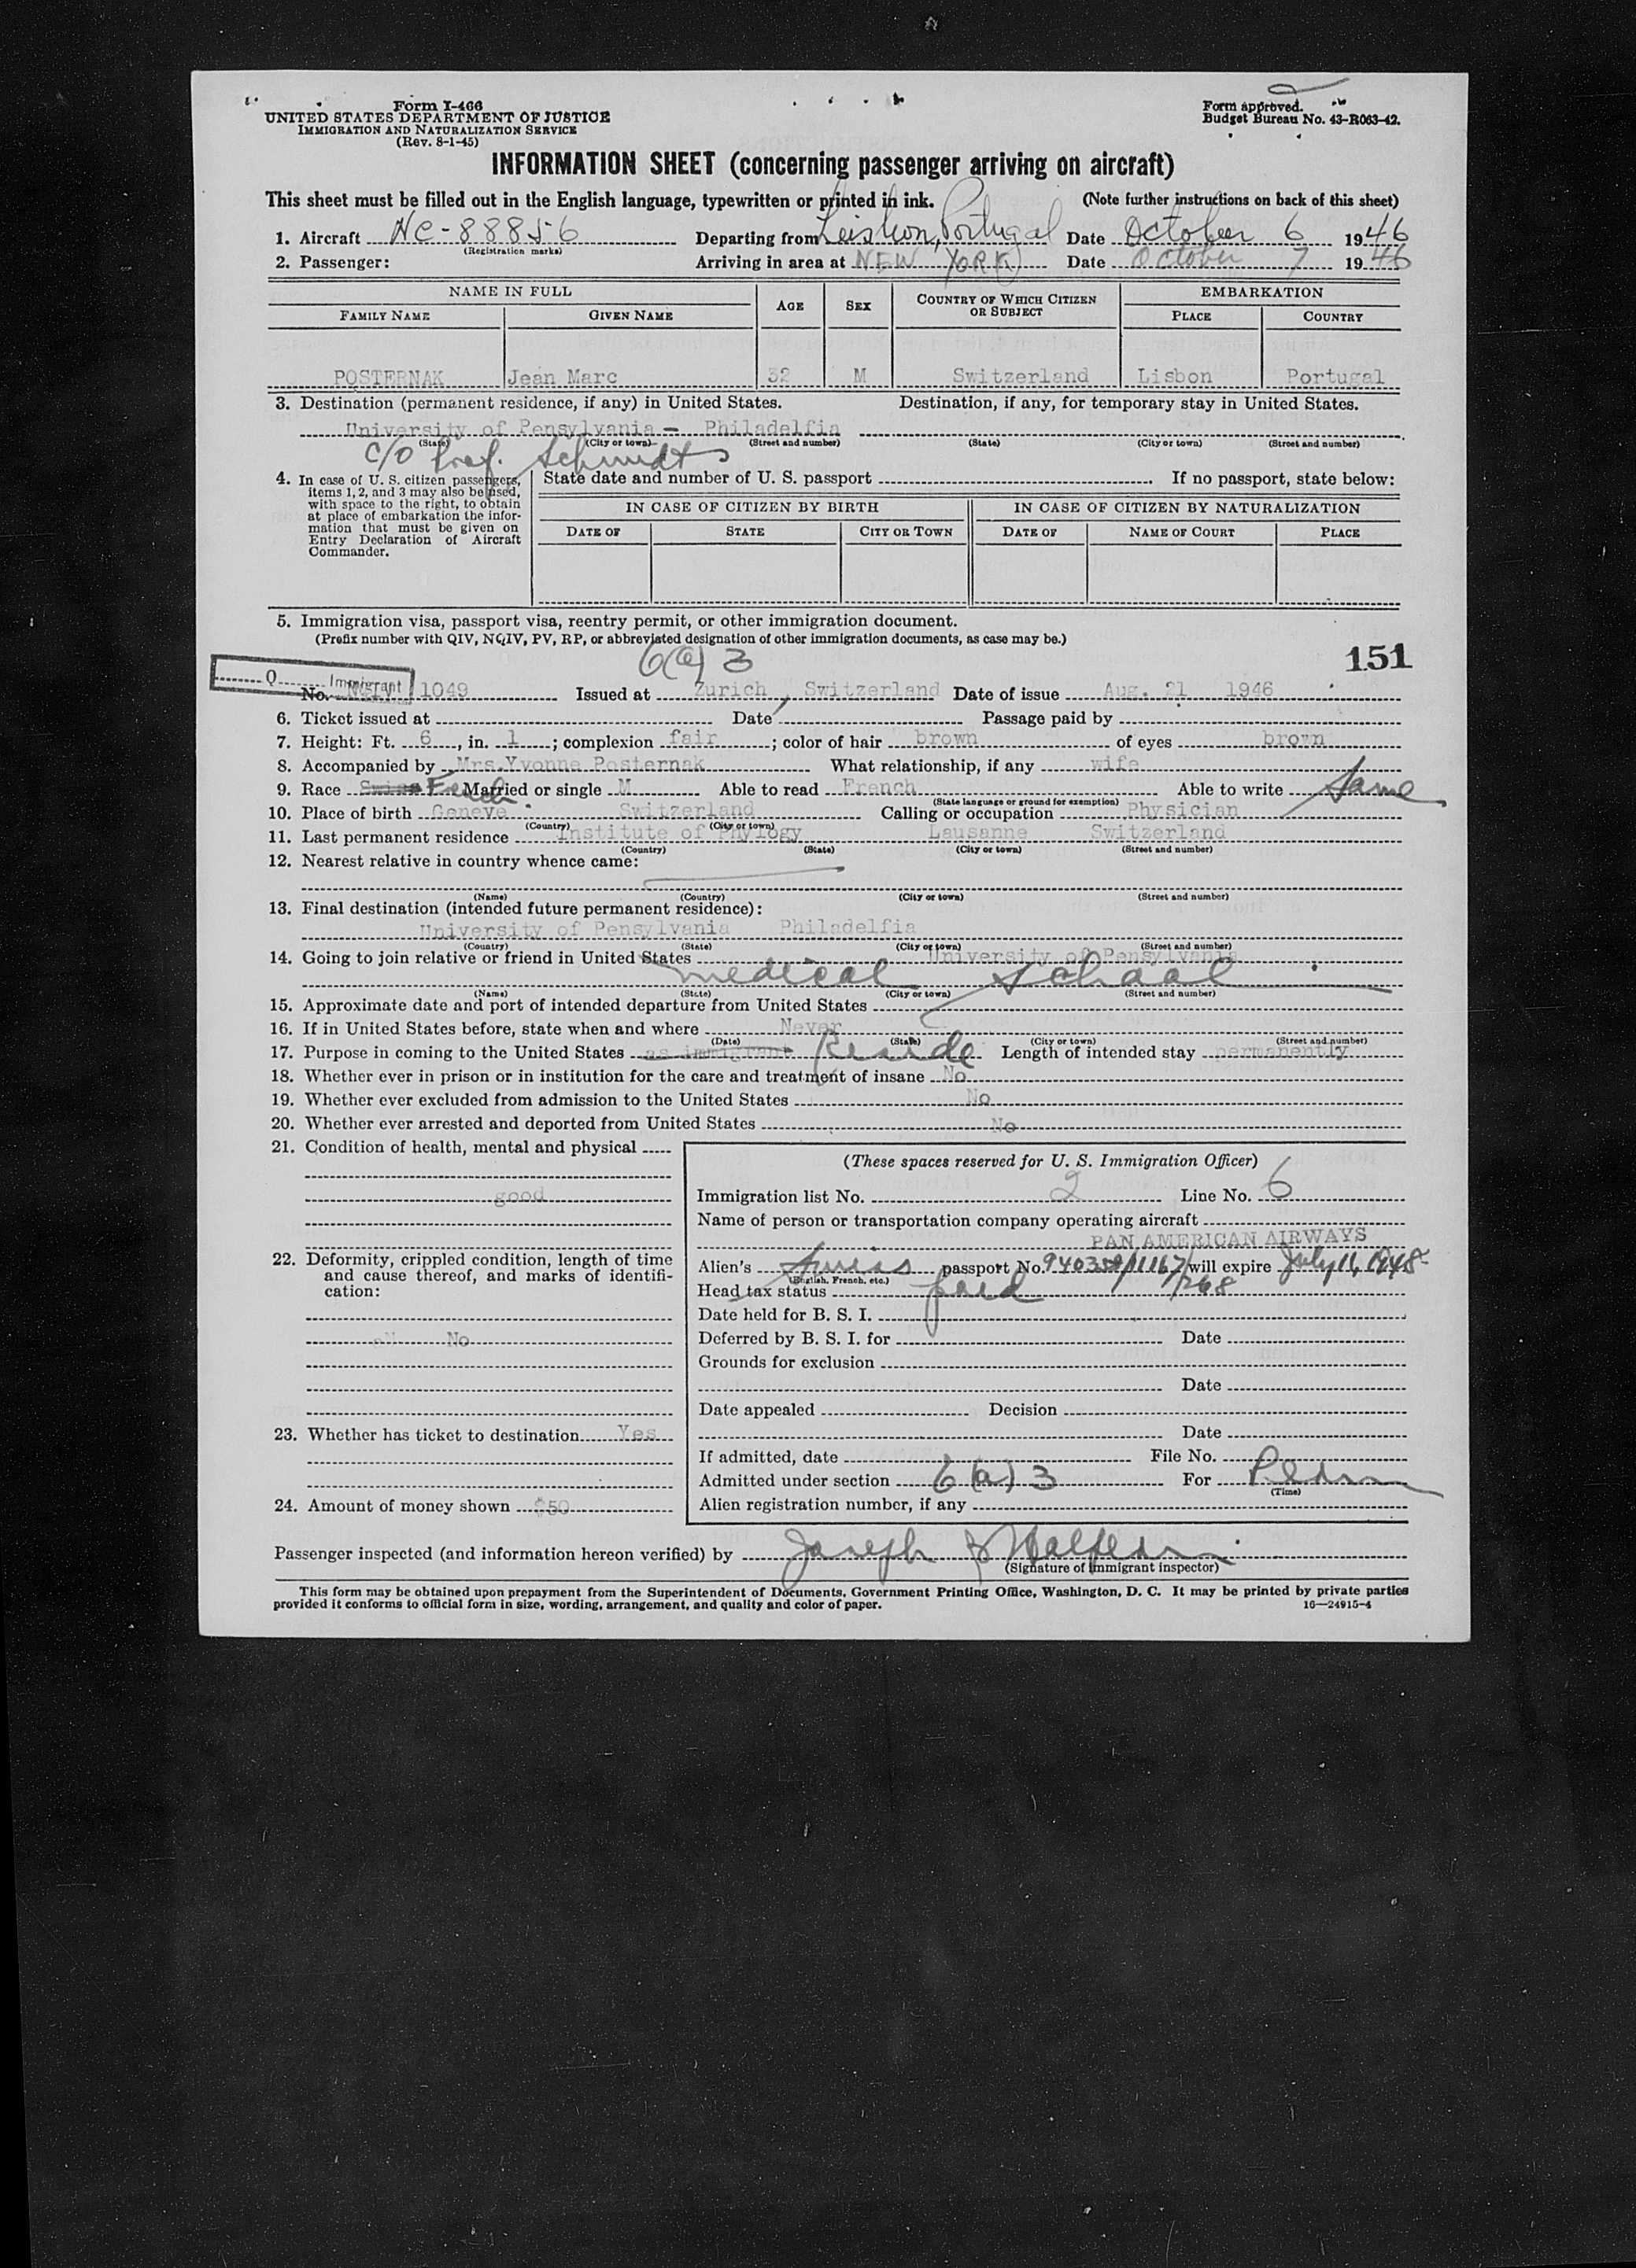 Form I-466
UNITED STATES DEPARTMENT OF JUSTICE
IMMIGRATION AND NATURALIZATION SERVICE
(Rev. 8-1-45)
Form approved.
Budget Bureau No. 43-R063-42.
INFORMATION SHEET (concerning passenger arriving on aircraft)
This sheet must be filled out in the English language, typewritten or printed in ink. (Note further instructions on back of this sheet)
1. Aircraft NC-88856 Departing from Portugal Date October 6 1946
(Registration marks)
2. Passenger: Arriving in area at NEW YORK Date October 7 1946
NAME IN FULL AGE SEX COUNTRY OF WHICH CITIZEN OR SUBJECT EMBARKATION
FAMILY NAME GIVEN NAME PLACE COUNTRY
POSTERNAK Jean Marc 32 M Switzerland Lisbon Portugal
3. Destination (permanent residence, if any) in United States. Destination, if any, for temporary stay in United States.
University of Pensylvania - Philadelfia
(State) (City or town) (Street and number) (State) (City or town) (Street and number)
c/o Prof. Schmidt
4. In case of U. S. citizen passengers, items 1, 2, and 3 may also be used, with space to the right, to obtain at place of embarkation the information that must be given on Entry Declaration of Aircraft Commander.
State date and number of U. S. passport If no passport, state below:
IN CASE OF CITIZEN BY BIRTH IN CASE OF CITIZEN BY NATURALIZATION
DATE OF STATE CITY OR TOWN DATE OF NAME OF COURT PLACE
5. Immigration visa, passport visa, reentry permit, or other immigration document.
(Prefix number with QIV, NQIV, PV, RP, or abbreviated designation of other immigration documents, as case may be.)
6(a) 3
151
Q Immigrant
No. 1049 Issued at Zurich, Switzerland Date of issue Aug. 21 1946
6. Ticket issued at Date Passage paid by
7. Height: Ft. 6, in. 1; complexion fair; color of hair brown of eyes brown
8. Accompanied by Mrs. Yvonne Posternak What relationship, if any wife
9. Race Swiss French Married or single M Able to read French Able to write Same
(State language or ground for exemption)
10. Place of birth Geneve Switzerland Calling or occupation Physician
(Country) (City or town)
11. Last permanent residence Institute of Phylogy Lausanne Switzerland
(Country) (State) (City or town) (Street and number)
12. Nearest relative in country whence came:
(Name) (Country) (City or town) (Street and number)
13. Final destination (intended future permanent residence):
University of Pensylvania Philadelfia
(Country) (State) (City or town) (Street and number)
14. Going to join relative or friend in United States University of Pensylvania
medical school
(Name) (State) (City or town) (Street and number)
15. Approximate date and port of intended departure from United States
16. If in United States before, state when and where Never
(Date) (State) (City or town) (Street and number)
17. Purpose in coming to the United States as immigrant Reside Length of intended stay permanently
18. Whether ever in prison or in institution for the care and treatment of insane No
19. Whether ever excluded from admission to the United States No
20. Whether ever arrested and deported from United States No
21. Condition of health, mental and physical
good
22. Deformity, crippled condition, length of time and cause thereof, and marks of identification:
No
23. Whether has ticket to destination Yes
24. Amount of money shown $50
(These spaces reserved for U. S. Immigration Officer)
Immigration list No. 2 Line No. 6
Name of person or transportation company operating aircraft
PAN AMERICAN AIRWAYS
Alien's Swiss passport No. will expire July 11, 1948
(English, French, etc.)
Head tax status paid
Date held for B. S. I.
Deferred by B. S. I. for Date
Grounds for exclusion
Date
Date appealed Decision
Date
If admitted, date File No.
Admitted under section 6(a) 3 For Perm
(Time)
Alien registration number, if any
Passenger inspected (and information hereon verified) by Joseph Halpern
(Signature of immigrant inspector)
This form may be obtained upon prepayment from the Superintendent of Documents, Government Printing Office, Washington, D. C. It may be printed by private parties
provided it conforms to official form in size, wording, arrangement, and quality and color of paper. 16—24915-4